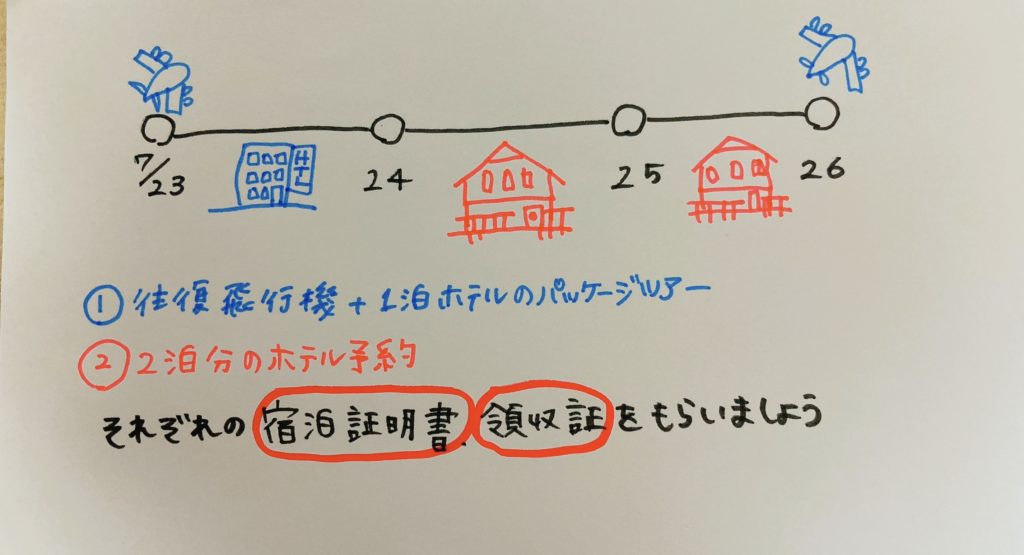 7/23 24 25 26
ホテル
① 往復飛行機+1泊ホテルのパッケージツアー
② 2泊分のホテル予約
それぞれの宿泊証明書、領収証をもらいましょう